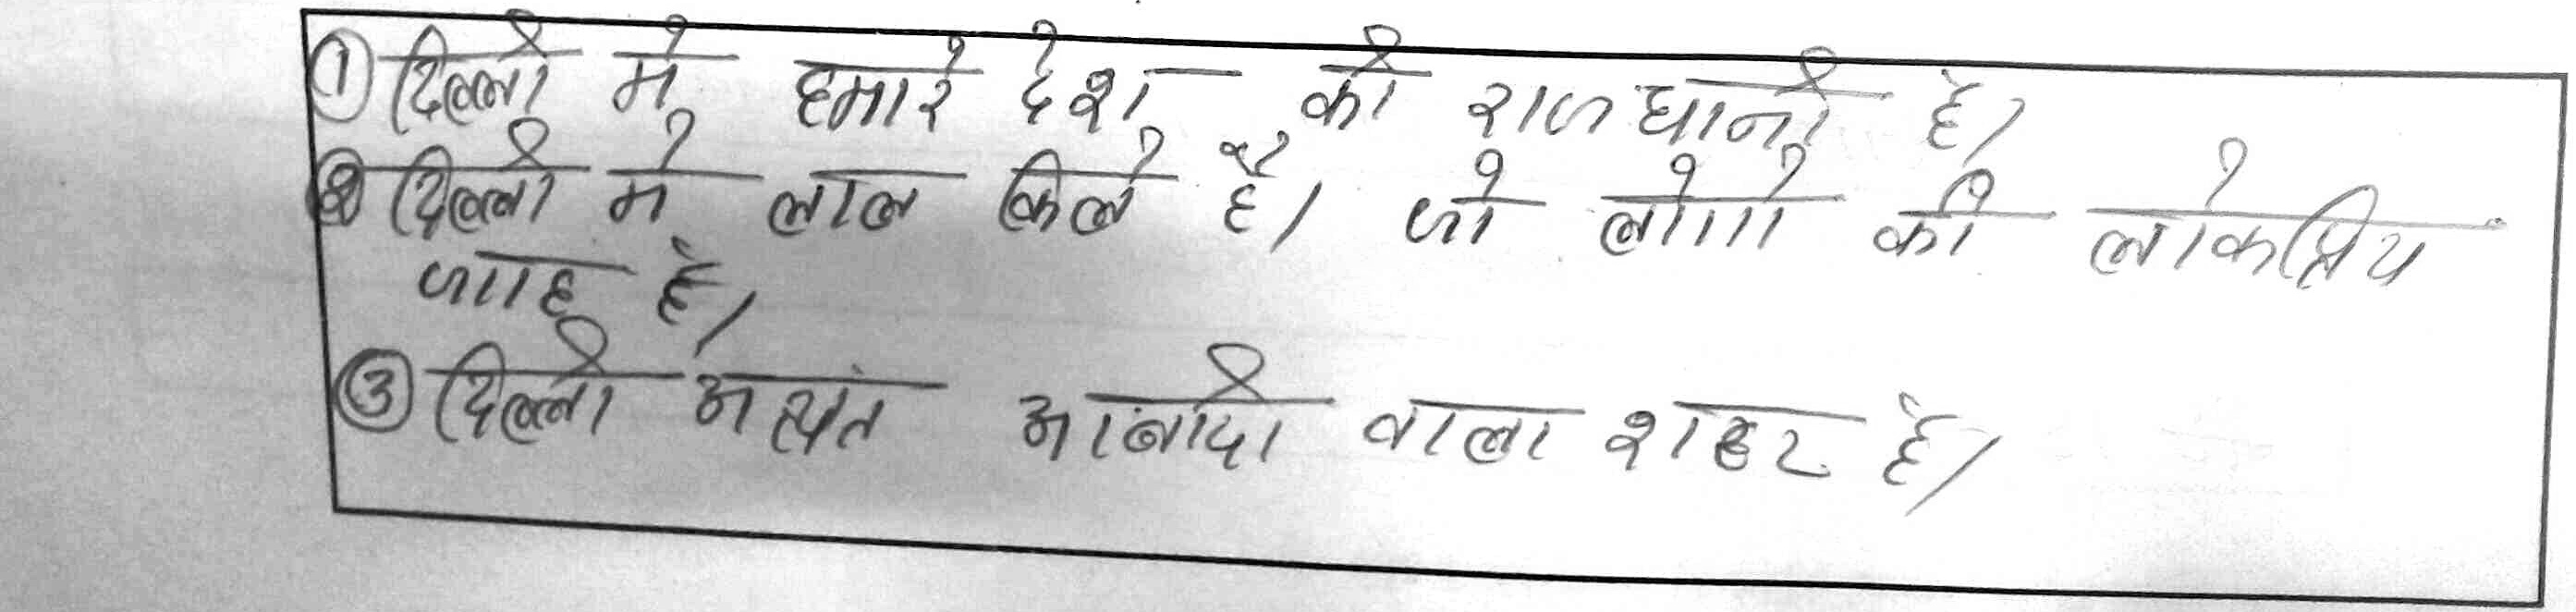 ① दिल्ली मे हमारे देश की राजधानी है।
② दिल्ली मे लाल किले है। जो लोगो की लोकप्रिय
जगह है।
③ दिल्ली अत्यंत आबादी वाला शहर है।